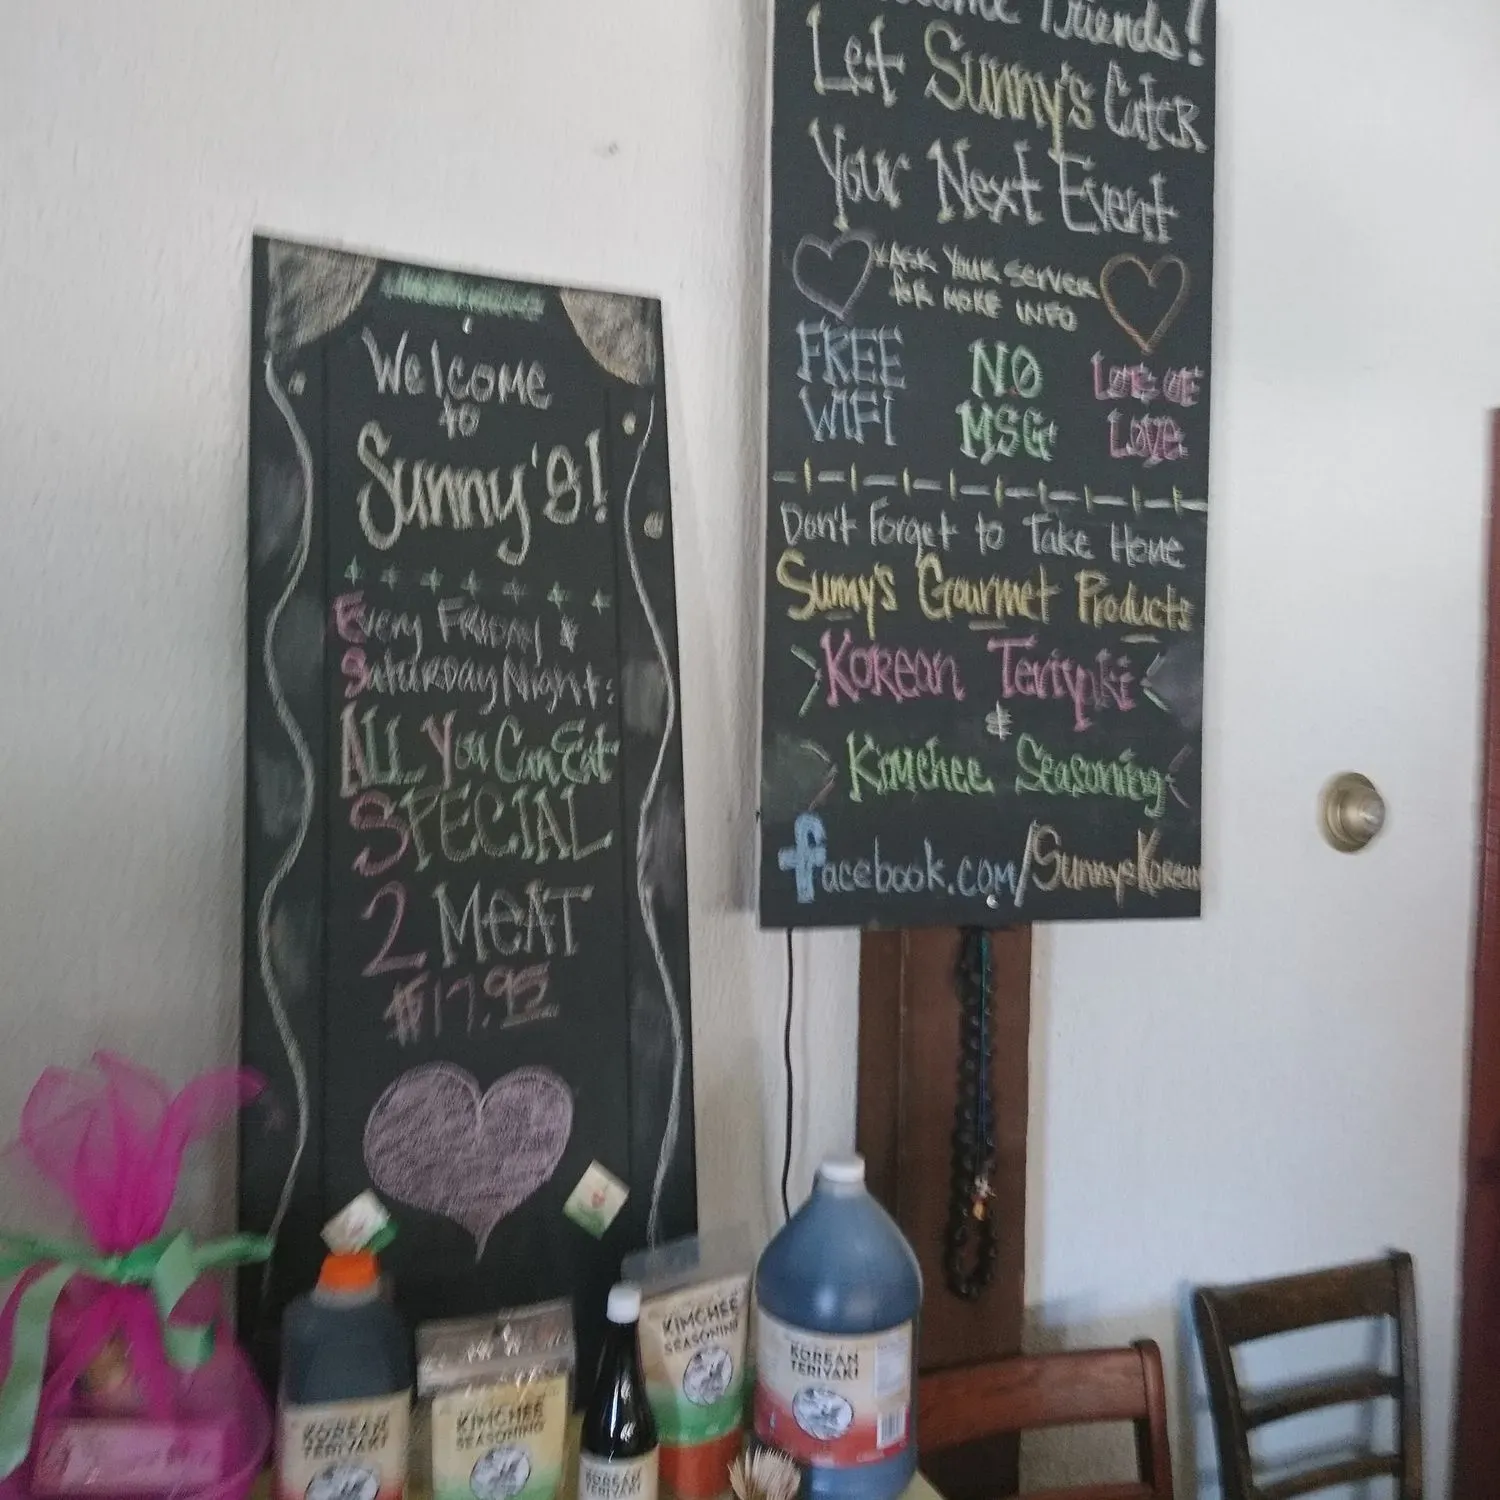 Welcome
to
Sunny's!
Every Friday &
Saturday Night:
ALL You Can Eat
SPECIAL
2 MEAT
$17.95
Friends!
Let Sunny's Cater
Your Next Event
*Ask Your Server
for more info
FREE
WIFI
NO
MSG
LOTS OF
LOVE
Don't Forget to Take Home
Sunny's Gourmet Products
Korean Teriyaki
&
Kimchee Seasoning
facebook.com/SunnysKorean
KOREAN
TERIYAKI
KIMCHEE
SEASONING
KOREAN
TERIYAKI
KIMCHEE
SEASONING
KOREAN
TERIYAKI